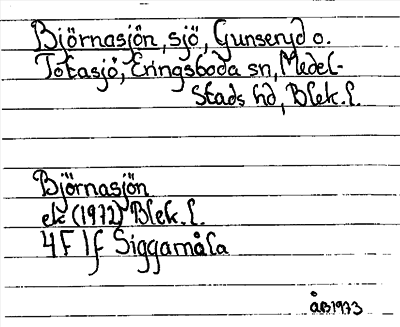 Björnasjön, sjö, Gunseryd o.
Totasjö, Eringsboda sn, Medel-
stads hd, Blek. l.
Björnasjön
ek (1972) Blek. l.
4F 1f Siggamåla
ÅB 1973